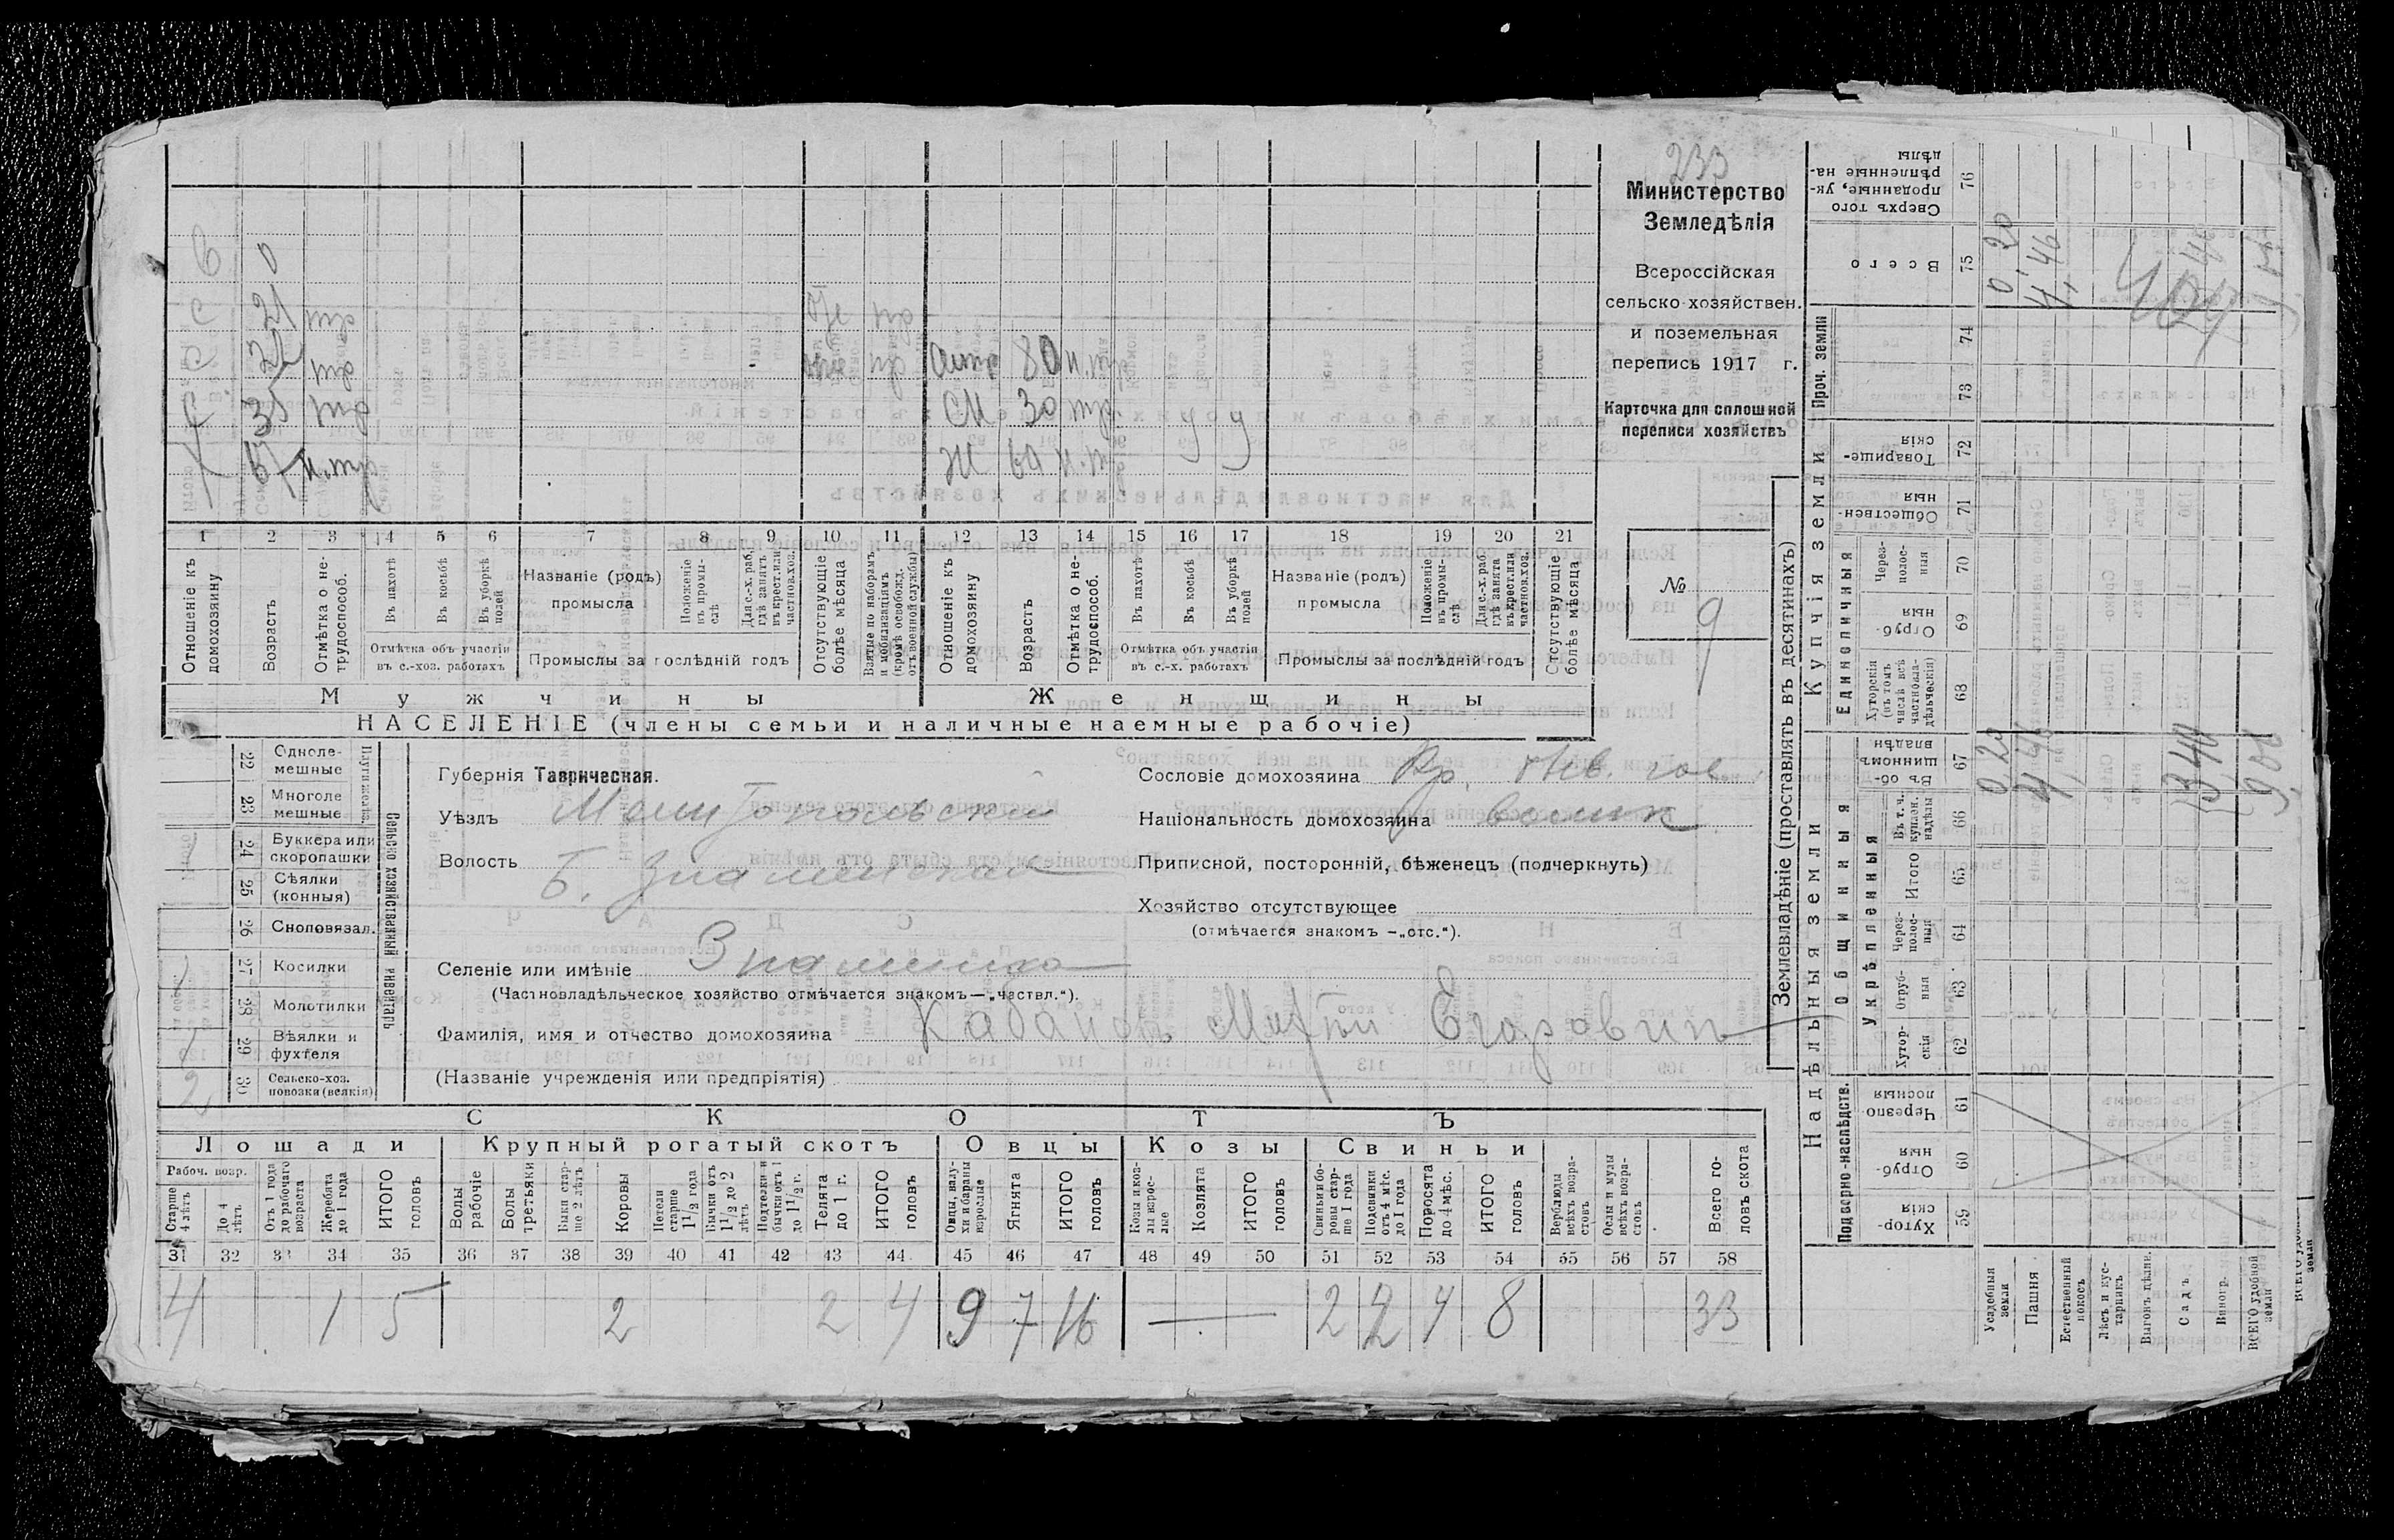 233
Министерство
Земледѣлія
Всероссійская
сельско-хозяйствен.
и поземельная
перепись 1917 г.
Карточка для сплошной
переписи хозяйствъ
№ 9
С 0
С 21 тр
С 22 тр пр
С 35 тр
67 н.тр
80 н.тр
СН 30 тр. у у
Ж 60 н.тр
1 2 3 4 5 6 7 8 9 10 11 12 13 14 15 16 17 18 19 20 21
Отношеніе къ домохозяину
Возрастъ
Отмѣтка о не-трудоспособ.
Въ пахотѣ
Въ косьбѣ
Въ уборкѣ полей
Отмѣтка объ участіи въ с.-хоз. работахъ
Названіе (родъ) промысла
Положеніе въ промы-слѣ
Для с.-х. раб. гдѣ занятъ въ крест. или частнов. хоз.
Промыслы за послѣдній годъ
Отсутствующіе болѣе мѣсяца
Взятые по наборамъ и мобилизаціямъ (кромѣ освобожд. отъ военной службы)
Отношеніе къ домохозяину
Возрастъ
Отмѣтка о не-трудоспособ.
Въ пахотѣ
Въ косьбѣ
Въ уборкѣ полей
Отмѣтка объ участіи въ с.-х. работахъ
Названіе (родъ) промысла
Положеніе въ промы-слѣ
Для с.-х. раб. гдѣ занята въ крест. или частнов. хоз.
Промыслы за послѣдній годъ
Отсутствующіе болѣе мѣсяца
Мужчины Женщины
НАСЕЛЕНІЕ (члены семьи и наличные наемные рабочіе)
22 Однолемешные
23 Многолемешные
24 Буккера или скоропашки
25 Сѣялки (конныя)
26 Сноповязал.
27 Косилки
28 Молотилки
29 Вѣялки и фухтеля
30 Сельско-хоз. повозки (всякія) 2
Сельско хозяйственный инвентарь
Губернія Таврическая.
Уѣздъ Мелитопольскій
Волость Б. Знаменская
Селеніе или имѣніе Знаменка
(Частновладѣльческое хозяйство отмѣчается знакомъ—„частвл.“).
Фамилія, имя и отчество домохозяина Кабановъ Егоровичъ
(Названіе учрежденія или предпріятія)
Сословіе домохозяина Кр.
Національность домохозяина
Приписной, посторонній, бѣженецъ (подчеркнуть)
Хозяйство отсутствующее
(отмѣчается знакомъ —„отс.“).
СКОТЪ
Лошади Крупный рогатый скотъ Овцы Козы Свиньи
Рабоч. возр.
Старше 4 лѣтъ
До 4 лѣтъ
Отъ 1 года до рабочаго возраста
Жеребята до 1 года
ИТОГО головъ
Волы рабочіе
Волы третьяки
Быки стар-ше 2 лѣтъ
Коровы
Нетели старше 1 1/2 года
Бычки отъ 1 1/2 до 2 лѣтъ
Подтелки и бычки отъ 1 до 1 1/2 г.
Телята до 1 г.
ИТОГО головъ
Овцы, валу-хи и бараны взрослые
Ягнята
ИТОГО головъ
Козы и коз-лы взрос-лые
Козлята
ИТОГО головъ
Свиньи и бо-ровы стар-ше 1 года
Подсвинки отъ 4 мѣс. до 1 года
Поросята до 4 мѣс.
ИТОГО головъ
Верблюды всѣхъ возра-стовъ
Ослы и мулы всѣхъ возра-стовъ
Всего го-ловъ скота
31 32 33 34 35 36 37 38 39 40 41 42 43 44 45 46 47 48 49 50 51 52 53 54 55 56 57 58
4 1 5 2 2 4 9 7 16 — 2 2 4 8 33
Землевладѣніе (проставлять въ десятинахъ)
Надѣльныя земли Купчія земли Проч. земли
Подворно-наслѣдств.
Общинныя
Укрѣпленныя
Единоличныя
Хутор-скія 59
Отруб-ныя 60
Черезпо-лосныя 61
Хутор-скія 62
Отруб-ныя 63
Через-полос-ныя 64
Итого 65
Въ т. ч. куплен. надѣлы 66
Въ об-щинномъ владѣн 67
Хуторскія (въ томъ числѣ всѣ частновла-дѣльческія) 68
Отруб-ныя 69
Через-полос-ныя 70
Обществен-ныя 71
Товарище-скія 72
73
74
Всего 75
Сверхъ того проданные, ук-рѣпленные на-дѣлы 76
Усадебныя земли 0,20 0,20
Пашня 4,46 4,46
Естественный покосъ
Лѣсъ и кус-тарникъ
Выгонъ цѣлин.
Садъ
Виногр.
ВСЕГО удобной земли